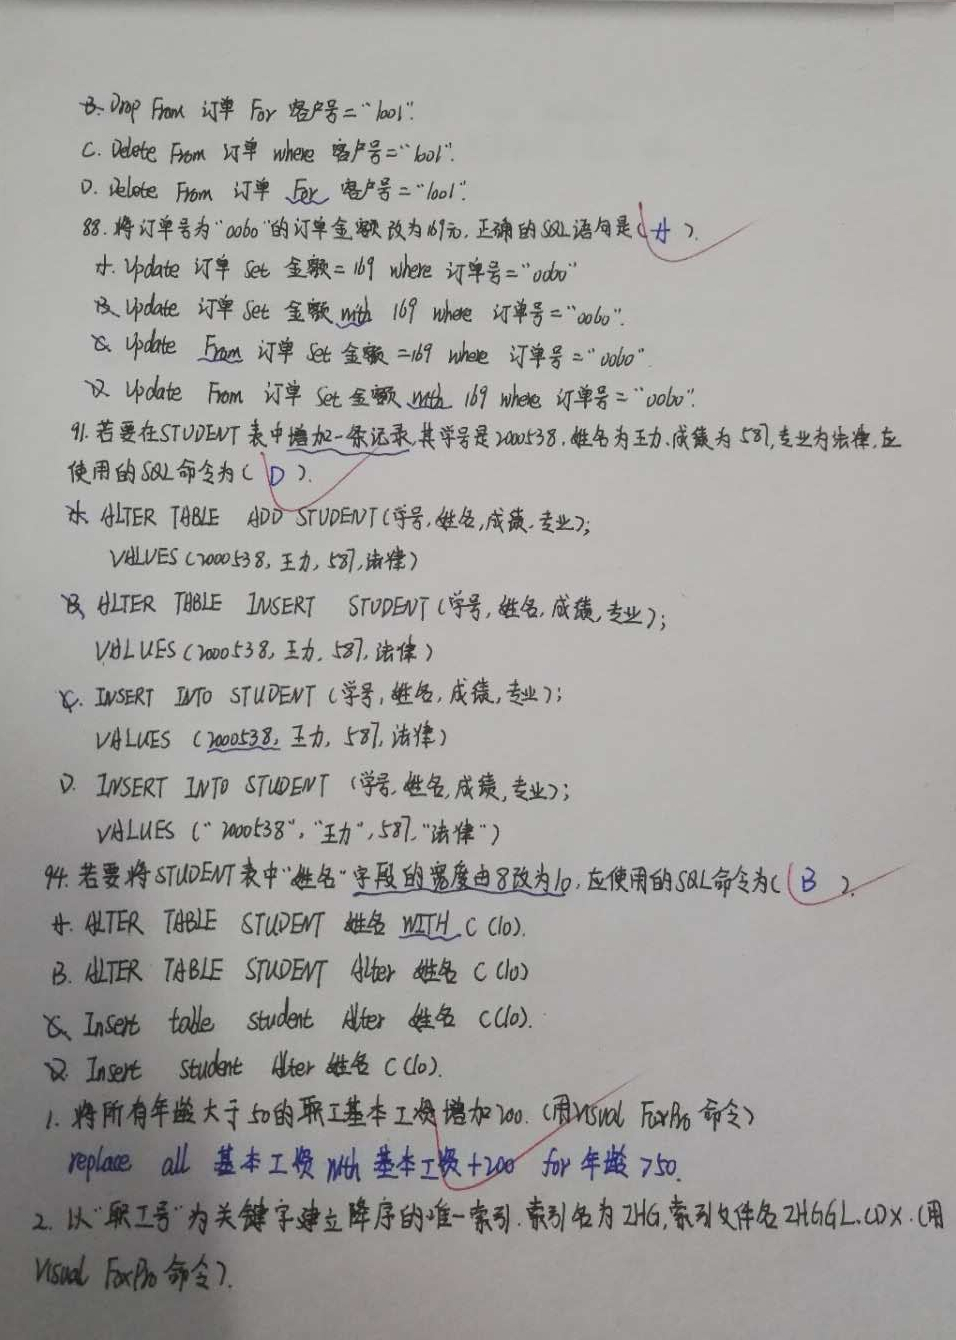 B. Drop From 订单 For 客户号="1001".
C. Delete From 订单 where 客户号="1001".
D. Delete From 订单 For 客户号="1001".
88. 将订单号为"0060"的订单金额改为169元, 正确的SQL语句是( A ).
A. Update 订单 Set 金额=169 where 订单号="0060"
B. Update 订单 Set 金额 with 169 where 订单号="0060".
C. Update From 订单 Set 金额=169 where 订单号="0060"
D. Update From 订单 Set 金额 with 169 where 订单号="0060".
91. 若要在STUDENT表中增加一条记录,其学号是2000538,姓名为王力,成绩为587,专业为法律,应
使用的SQL命令为( D ).
A. ALTER TABLE ADD STUDENT(学号,姓名,成绩,专业);
VALUES(2000538,王力,587,法律)
B. ALTER TABLE INSERT STUDENT(学号,姓名,成绩,专业);
VALUES(2000538,王力,587,法律)
C. INSERT INTO STUDENT (学号,姓名,成绩,专业);
VALUES (2000538,王力,587,法律)
D. INSERT INTO STUDENT (学号,姓名,成绩,专业);
VALUES ("2000538","王力",587,"法律")
94. 若要将STUDENT表中"姓名"字段的宽度由8改为10,应使用的SQL命令为( B ).
A. ALTER TABLE STUDENT 姓名 WITH C(10).
B. ALTER TABLE STUDENT Alter 姓名 C(10)
C. Insert table student Alter 姓名 C(10).
D. Insert student Alter 姓名 C(10).
1. 将所有年龄大于50的职工基本工资增加200. (用Visual FoxPro命令)
replace all 基本工资 with 基本工资+200 for 年龄>50.
2. 以"职工号"为关键字建立降序的唯一索引.索引名为ZHG,索引文件名ZHGGL.CDX.(用
Visual FoxPro命令).